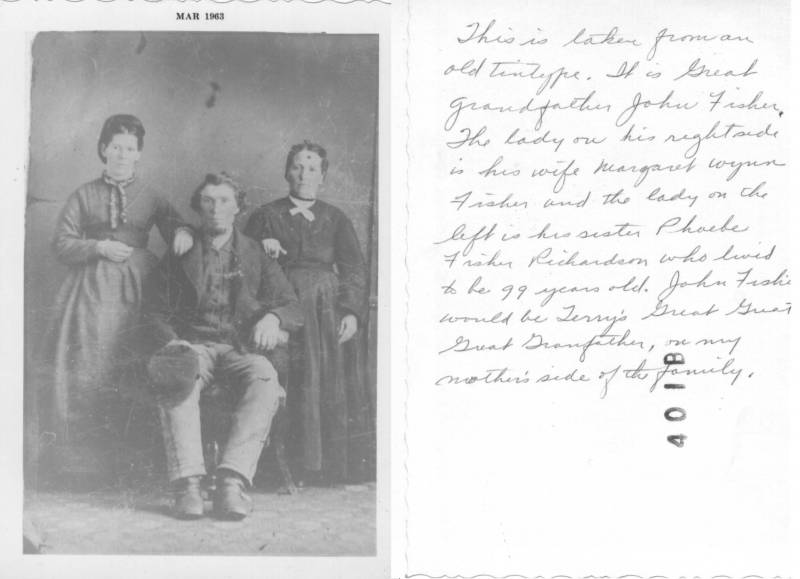 MAR 1963
This is taken from an
old tintype. It is Great
grandfather John Fisher.
The lady on his right side
is his wife Margaret Wynn
Fisher and the lady on the
left is his sister Phoebe
Fisher Richardson who lived
to be 99 years old. John Fishe
would be Terry's Great Great
Great Granfather, on my
mother's side of the family.
401B